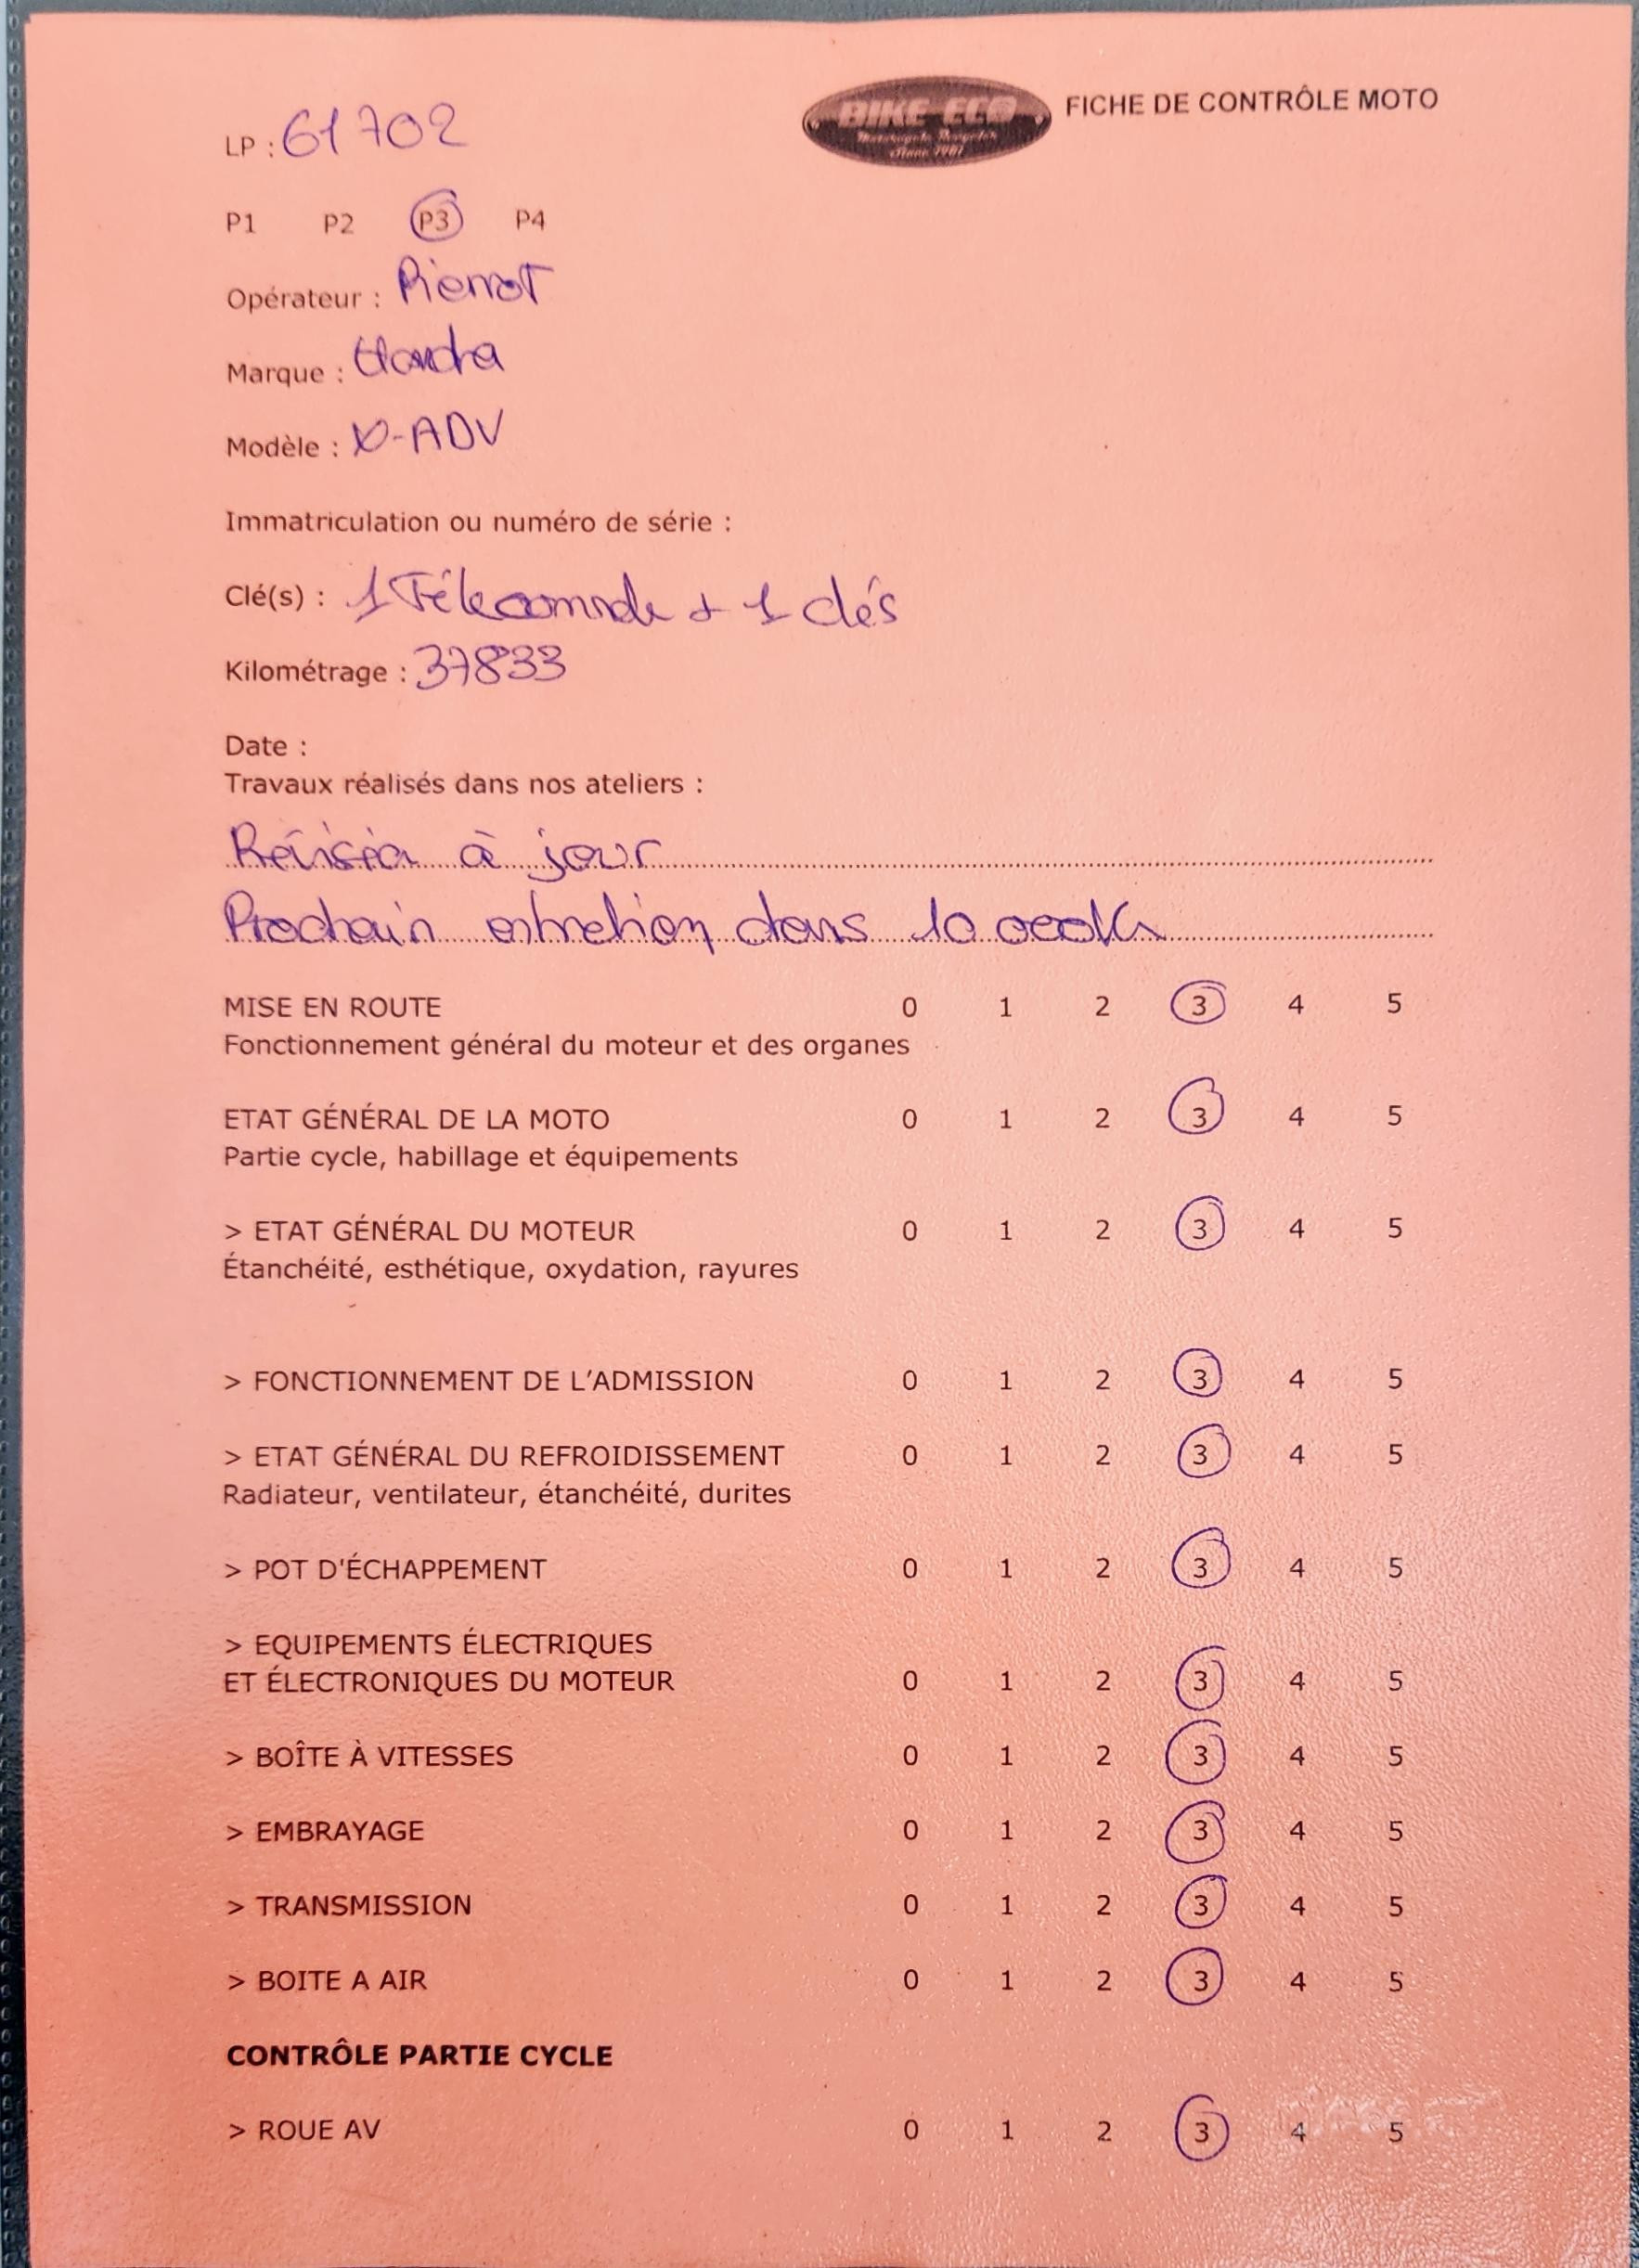 BIKE-ECO
Motorcycle Recycler
Since 1987
FICHE DE CONTRÔLE MOTO
LP : 61702
P1 P2 P3 P4
Opérateur : Pierrot
Marque : Honda
Modèle : X-ADV
Immatriculation ou numéro de série :
Clé(s) : 1 Télécomnde + 1 clés
Kilométrage : 37833
Date :
Travaux réalisés dans nos ateliers :
Révision à jour
Prochain entretion dans 10 000k
MISE EN ROUTE 0 1 2 3 4 5
Fonctionnement général du moteur et des organes
ETAT GÉNÉRAL DE LA MOTO 0 1 2 3 4 5
Partie cycle, habillage et équipements
> ETAT GÉNÉRAL DU MOTEUR 0 1 2 3 4 5
Étanchéité, esthétique, oxydation, rayures
> FONCTIONNEMENT DE L'ADMISSION 0 1 2 3 4 5
> ETAT GÉNÉRAL DU REFROIDISSEMENT 0 1 2 3 4 5
Radiateur, ventilateur, étanchéité, durites
> POT D'ÉCHAPPEMENT 0 1 2 3 4 5
> EQUIPEMENTS ÉLECTRIQUES
ET ÉLECTRONIQUES DU MOTEUR 0 1 2 3 4 5
> BOÎTE À VITESSES 0 1 2 3 4 5
> EMBRAYAGE 0 1 2 3 4 5
> TRANSMISSION 0 1 2 3 4 5
> BOITE A AIR 0 1 2 3 4 5
CONTRÔLE PARTIE CYCLE
> ROUE AV 0 1 2 3 4 5